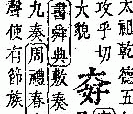 太祖乾德五
攻乎切
大貌
書舜典敷奏
九奏周禮春
聲使有節族